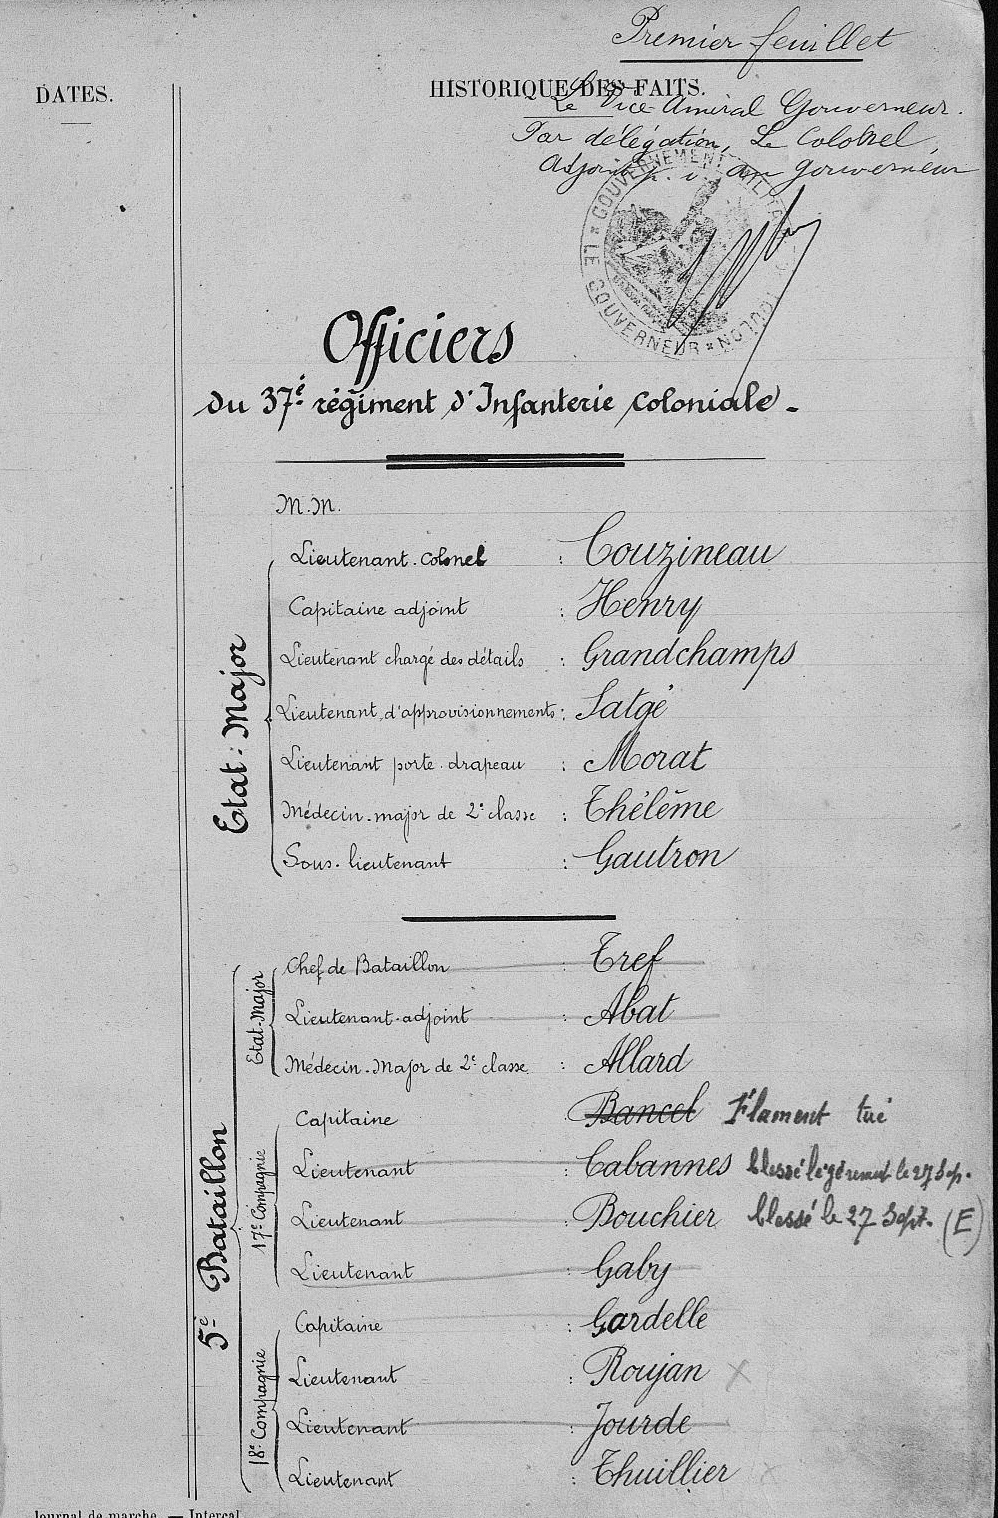 Premier feuillet
DATES.
HISTORIQUE DES FAITS.
Le Vice-Amiral Gouverneur.
Par délégation, Le Colonel,
Adjoint p. i. au gouverneur
GOUVERNEMENT MILITAIRE TOULON * LE GOUVERNEUR *
Officiers
du 37è régiment d'Infanterie coloniale -
M.M.
Etat-Major
Lieutenant-colonel : Couzineau
Capitaine adjoint : Henry
Lieutenant chargé des détails : Grandchamps
Lieutenant d'approvisionnements : Satgé
Lieutenant porte-drapeau : Morat
Médecin-major de 2e classe : Thélème
Sous-lieutenant : Gautron
5è Bataillon
Etat-Major
Chef de Bataillon : Tref
Lieutenant-adjoint : Abat
Médecin-Major de 2e classe : Allard
17e Compagnie
Capitaine Bancel Flament tué
Lieutenant : Cabannes blessé légèrement le 27 Sep.
Lieutenant : Bouchier blessé le 27 Sept. (E)
Lieutenant : Gaby
18e Compagnie
Capitaine : Gardelle
Lieutenant : Roujan X
Lieutenant : Jourde
Lieutenant : Thuillier
Journal de marche. — Intercal.